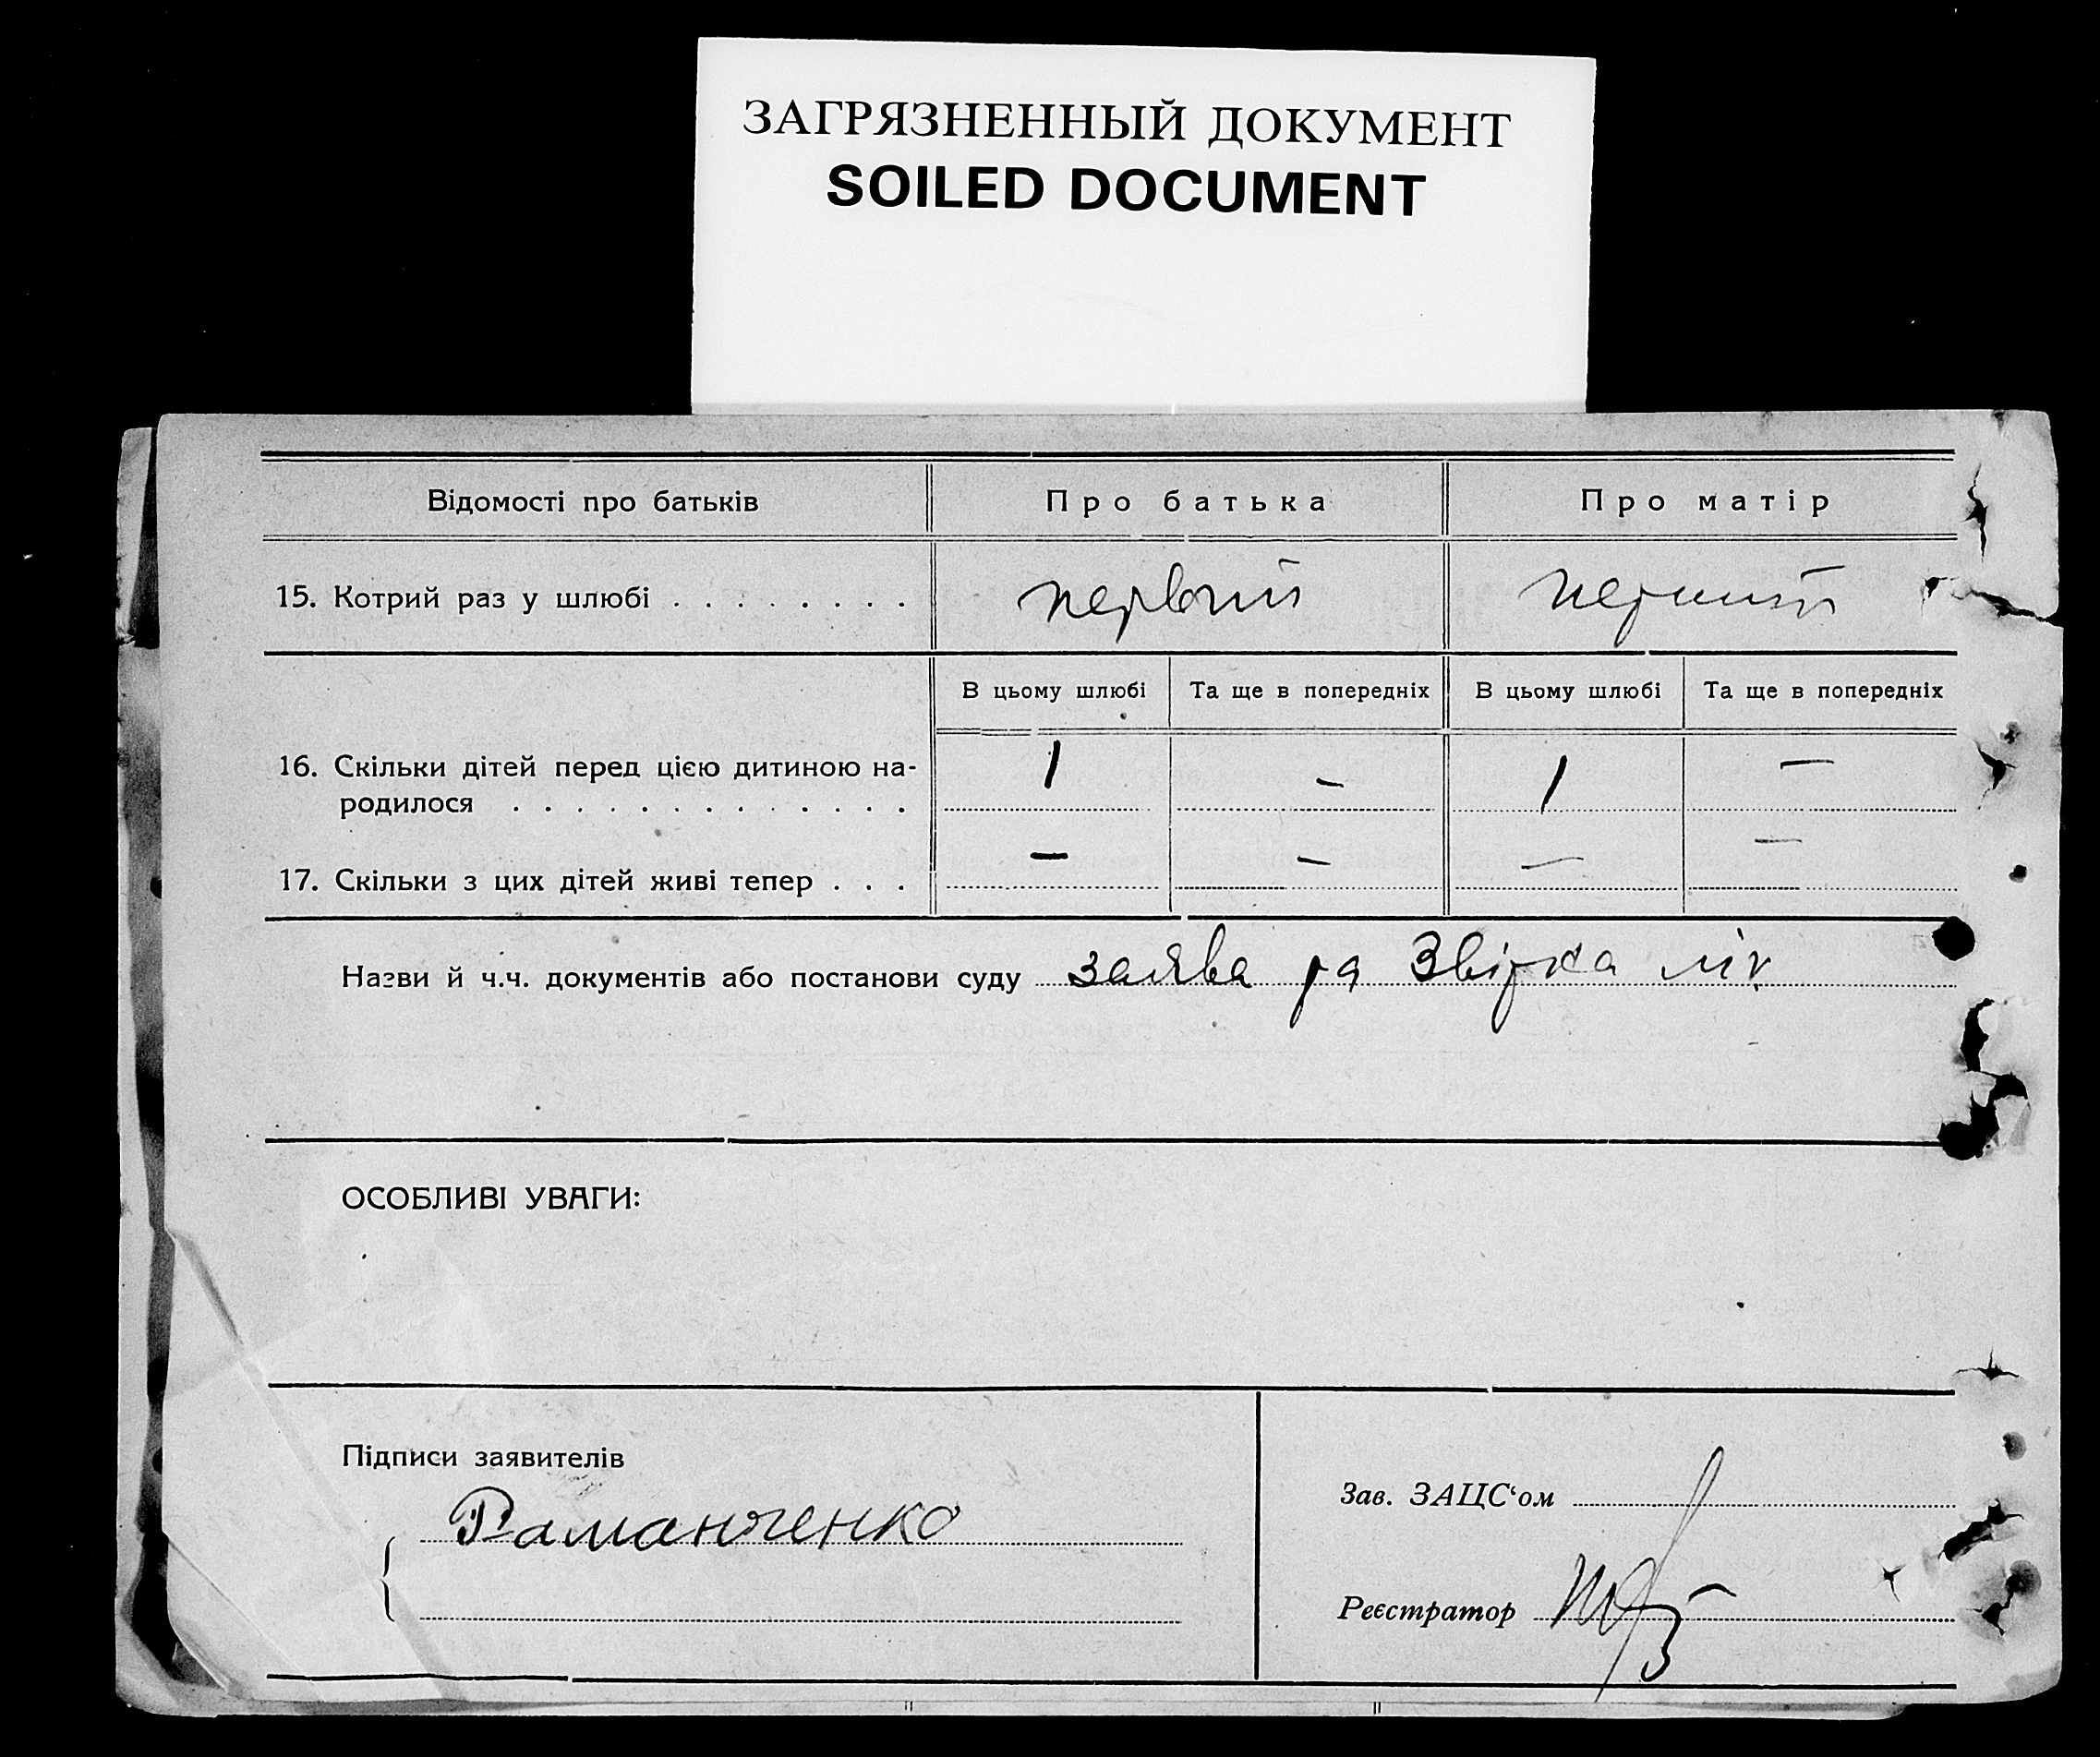 ЗАГРЯЗНЕННЫЙ ДОКУМЕНТ
SOILED DOCUMENT
Відомості про батьків Про батька Про матір
15. Котрий раз у шлюбі . . . . . . . . первий перший
В цьому шлюбі Та ще в попередніх В цьому шлюбі Та ще в попередніх
16. Скільки дітей перед цією дитиною на-
родилося . . . . . . . . . . . . . 1 – 1 –
17. Скільки з цих дітей живі тепер . . . – – – –
Назви й ч.ч. документів або постанови суду заява та
ОСОБЛИВІ УВАГИ:
Підписи заявителів
Раманченко
Зав. ЗАЦС‘ом
Реєстратор